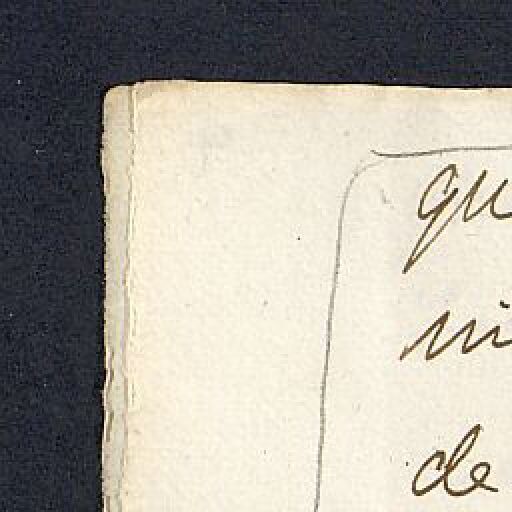 qu
ni
de